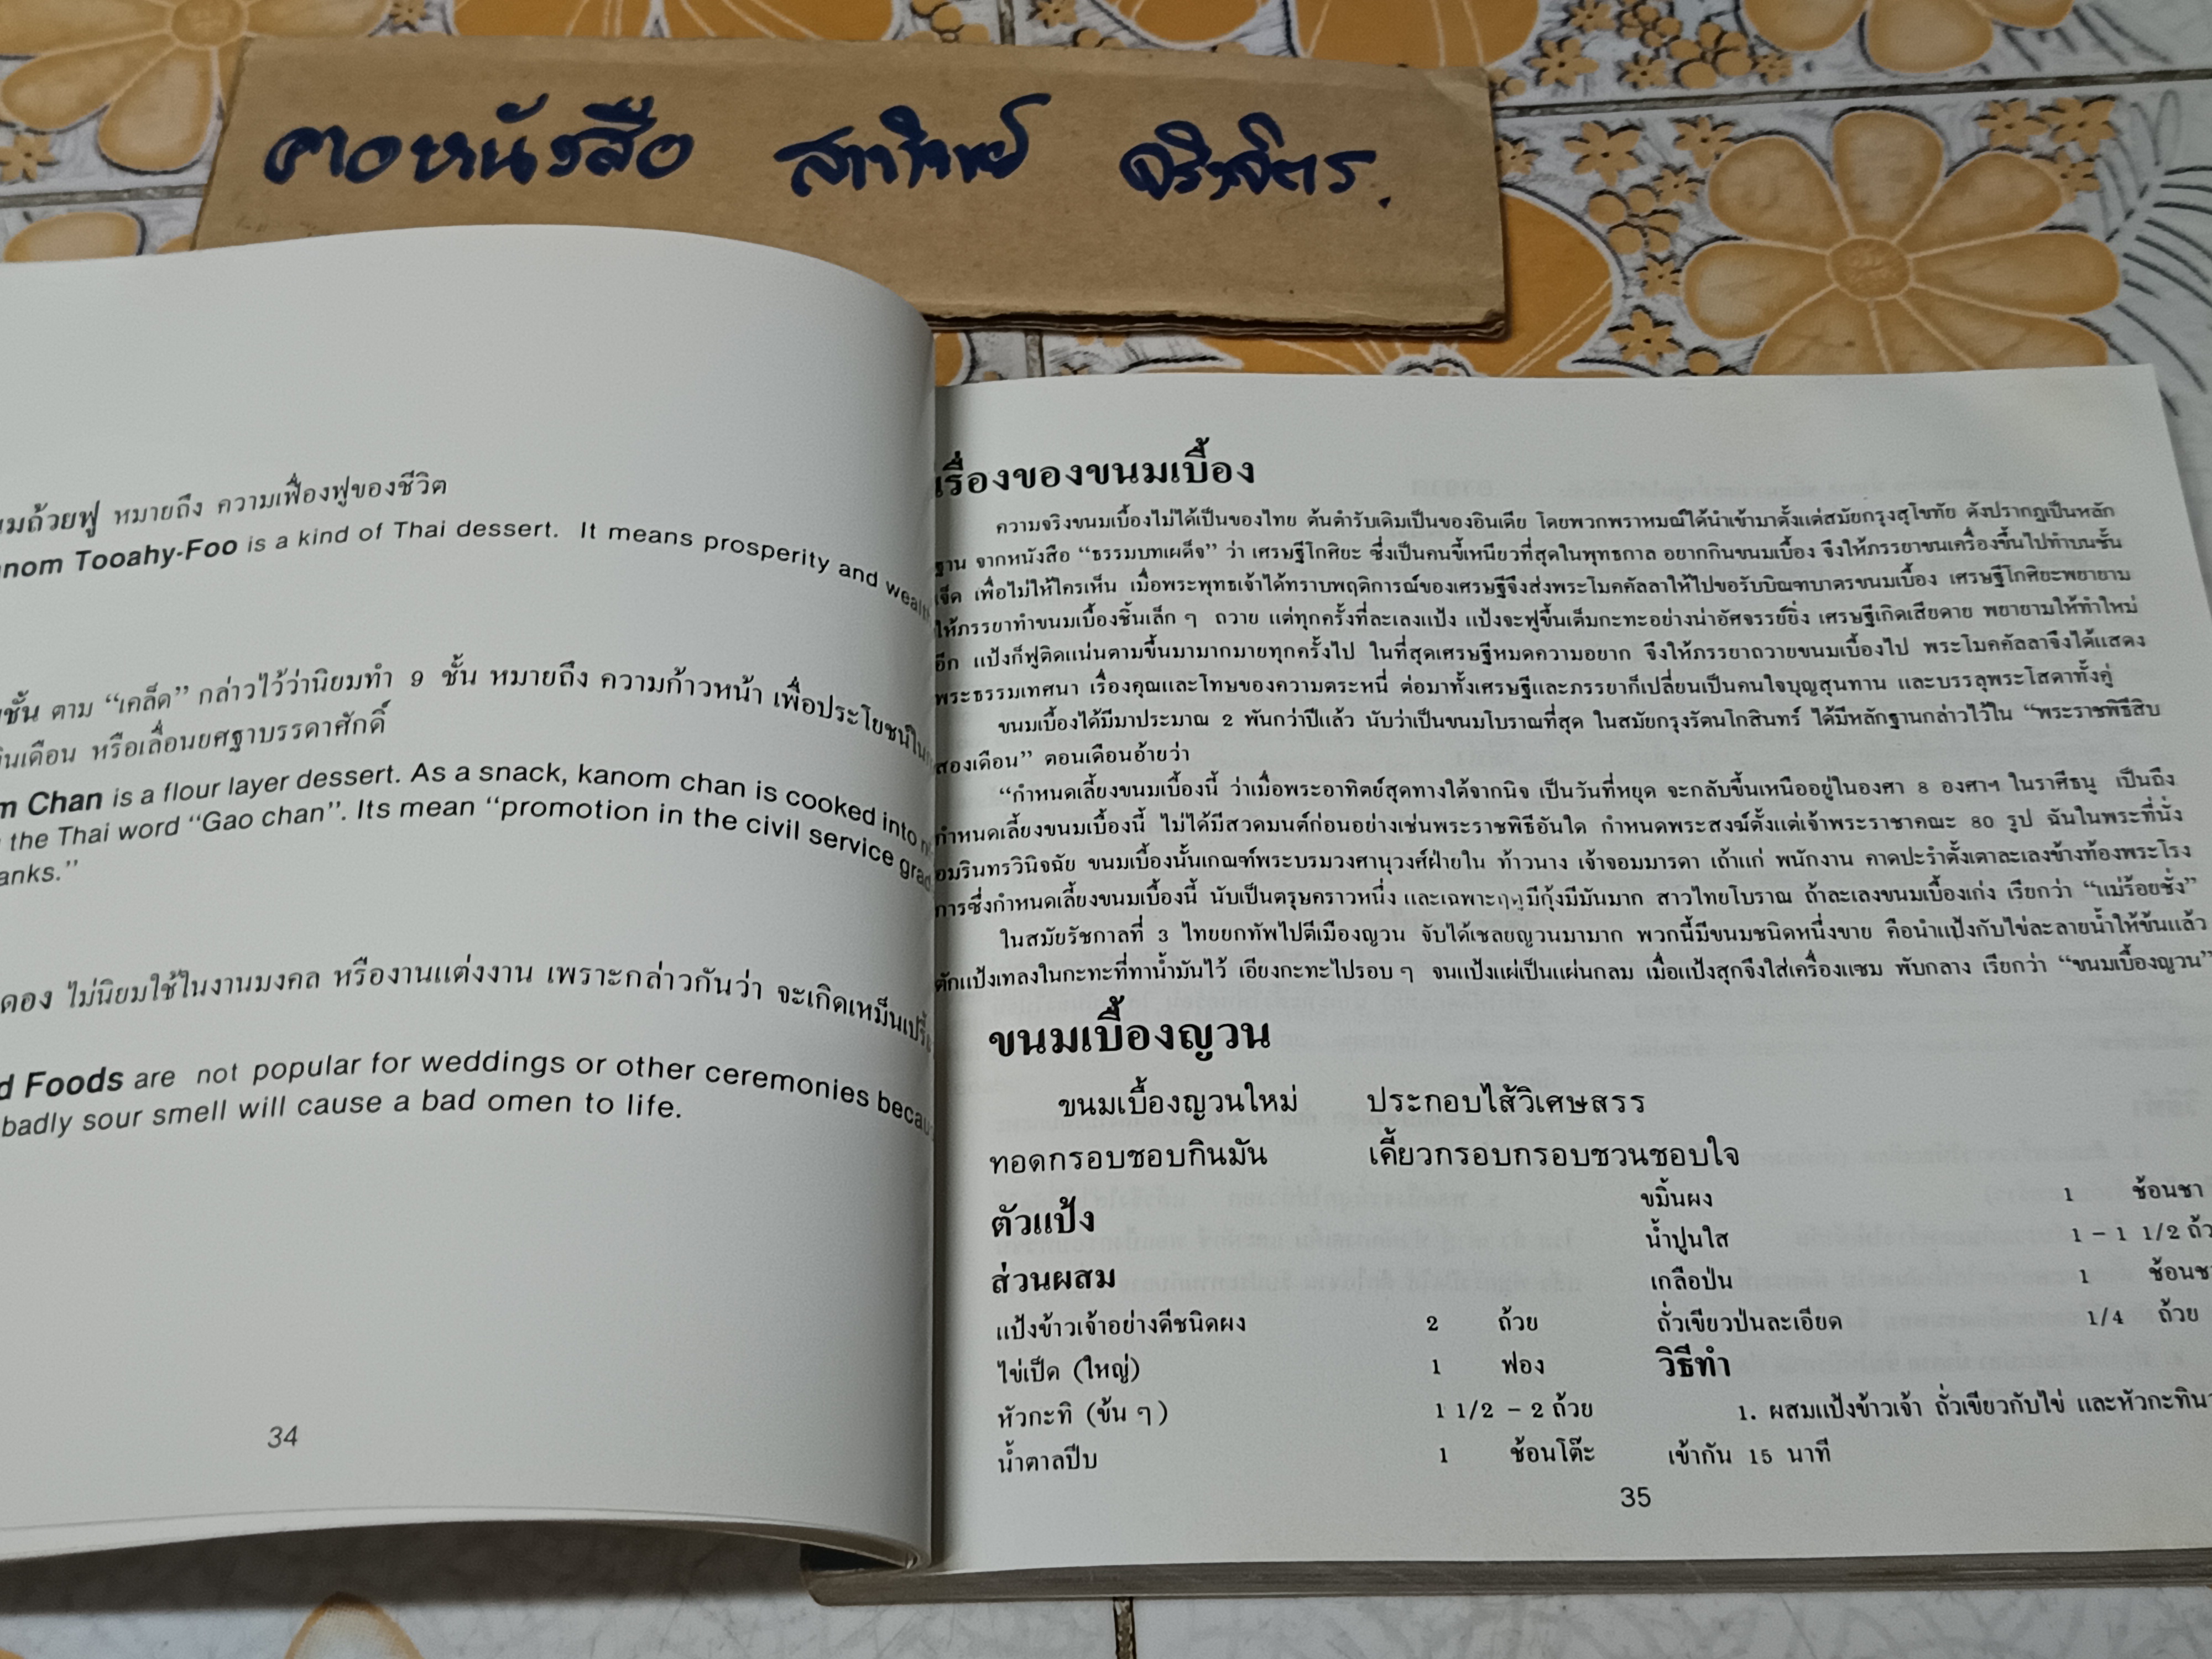 คอหนังสือ สาวิตรี จริงจิตร.
นมถ้วยฟู หมายถึง ความเฟื่องฟูของชีวิต
nom Tooahy-Foo is a kind of Thai dessert. It means prosperity and wealth
ชั้น ตาม “เคล็ด” กล่าวไว้ว่านิยมทำ 9 ชั้น หมายถึง ความก้าวหน้า เพื่อประโยชน์ใน
นเดือน หรือเลื่อนยศฐาบรรดาศักดิ์
m Chan is a flour layer dessert. As a snack, kanom chan is cooked into
the Thai word “Gao chan”. Its mean “promotion in the civil service grad
anks.”
ดอง ไม่นิยมใช้ในงานมงคล หรืองานแต่งงาน เพราะกล่าวกันว่า จะเกิดเหม็นเปรี้ย
d Foods are not popular for weddings or other ceremonies becau
badly sour smell will cause a bad omen to life.
34
เรื่องของขนมเบื้อง
ความจริงขนมเบื้องไม่ได้เป็นของไทย ต้นตำรับเดิมเป็นของอินเดีย โดยพวกพราหมณ์ได้นำเข้ามาตั้งแต่สมัยกรุงสุโขทัย ดังปรากฏเป็นหลัก
ฐาน จากหนังสือ “ธรรมบทเผด็จ” ว่า เศรษฐีโกสิยะ ซึ่งเป็นคนขี้เหนียวที่สุดในพุทธกาล อยากกินขนมเบื้อง จึงให้ภรรยาขนเครื่องขึ้นไปทำบนชั้น
เจ็ด เพื่อไม่ให้ใครเห็น เมื่อพระพุทธเจ้าได้ทราบพฤติการณ์ของเศรษฐีจึงส่งพระโมคคัลลาให้ไปขอรับบิณฑบาตรขนมเบื้อง เศรษฐีโกสิยะพยายาม
ให้ภรรยาทำขนมเบื้องชิ้นเล็ก ๆ ถวาย แต่ทุกครั้งที่ละเลงแป้ง แป้งจะฟูขึ้นเต็มกะทะอย่างน่าอัศจรรย์ยิ่ง เศรษฐีเกิดเสียดาย พยายามให้ทำใหม่
อีก แป้งก็ฟูติดแน่นตามขึ้นมามากมายทุกครั้งไป ในที่สุดเศรษฐีหมดความอยาก จึงให้ภรรยาถวายขนมเบื้องไป พระโมคคัลลาจึงได้แสดง
พระธรรมเทศนา เรื่องคุณและโทษของความตระหนี่ ต่อมาทั้งเศรษฐีและภรรยาก็เปลี่ยนเป็นคนใจบุญสุนทาน และบรรลุพระโสดาทั้งคู่
ขนมเบื้องได้มีมาประมาณ 2 พันกว่าปีแล้ว นับว่าเป็นขนมโบราณที่สุด ในสมัยกรุงรัตนโกสินทร์ ได้มีหลักฐานกล่าวไว้ใน “พระราชพิธีสิบ
สองเดือน” ตอนเดือนอ้ายว่า
“กำหนดเลี้ยงขนมเบื้องนี้ ว่าเมื่อพระอาทิตย์สุดทางใต้จากนิจ เป็นวันที่หยุด จะกลับขึ้นเหนืออยู่ในองศา 8 องศาฯ ในราศีธนู เป็นถึง
กำหนดเลี้ยงขนมเบื้องนี้ ไม่ได้มีสวดมนต์ก่อนอย่างเช่นพระราชพิธีอันใด กำหนดพระสงฆ์ตั้งแต่เจ้าพระราชาคณะ 80 รูป ฉันในพระที่นั่ง
อมรินทรวินิจฉัย ขนมเบื้องนั้นเกณฑ์พระบรมวงศานุวงศ์ฝ่ายใน ท้าวนาง เจ้าจอมมารดา เถ้าแก่ พนักงาน คาดปะรำตั้งเตาละเลงข้างท้องพระโรง
การซึ่งกำหนดเลี้ยงขนมเบื้องนี้ นับเป็นตรุษคราวหนึ่ง และเฉพาะฤดูมีกุ้งมีมันมาก สาวไทยโบราณ ถ้าละเลงขนมเบื้องเก่ง เรียกว่า “แม่ร้อยชั่ง”
ในสมัยรัชกาลที่ 3 ไทยยกทัพไปตีเมืองญวน จับได้เชลยญวนมามาก พวกนี้มีขนมชนิดหนึ่งขาย คือนำแป้งกับไข่ละลายน้ำให้ข้นแล้ว
ตักแป้งเทลงในกะทะที่ทาน้ำมันไว้ เอียงกะทะไปรอบ ๆ จนแป้งแผ่เป็นแผ่นกลม เมื่อแป้งสุกจึงใส่เครื่องแซม พับกลาง เรียกว่า “ขนมเบื้องญวน”
ขนมเบื้องญวน
ขนมเบื้องญวนใหม่ ประกอบไส้วิเศษสรร
ทอดกรอบชอบกินมัน เคี้ยวกรอบกรอบชวนชอบใจ
ตัวแป้ง
ส่วนผสม
แป้งข้าวเจ้าอย่างดีชนิดผง 2 ถ้วย
ไข่เป็ด (ใหญ่) 1 ฟอง
หัวกะทิ (ข้น ๆ) 1 1/2 – 2 ถ้วย
น้ำตาลปีบ 1 ช้อนโต๊ะ
ขมิ้นผง 1 ช้อนชา
น้ำปูนใส 1 – 1 1/2 ถ้ว
เกลือป่น 1 ช้อนช
ถั่วเขียวป่นละเอียด 1/4 ถ้วย
วิธีทำ
1. ผสมแป้งข้าวเจ้า ถั่วเขียวกับไข่ และหัวกะทินว
เข้ากัน 15 นาที
35